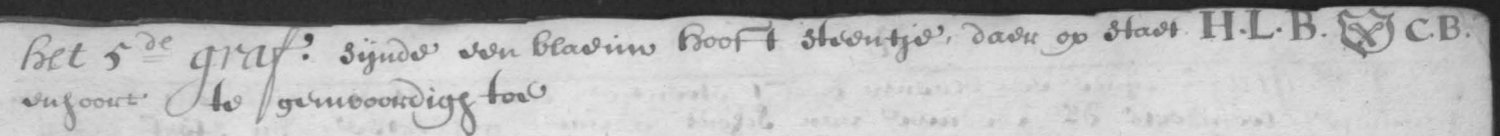 het 5de graf. zijnde een blaeuw hooft steentje, daer op staet H.L.B. C.B.
enhoort te genwoordigh toe